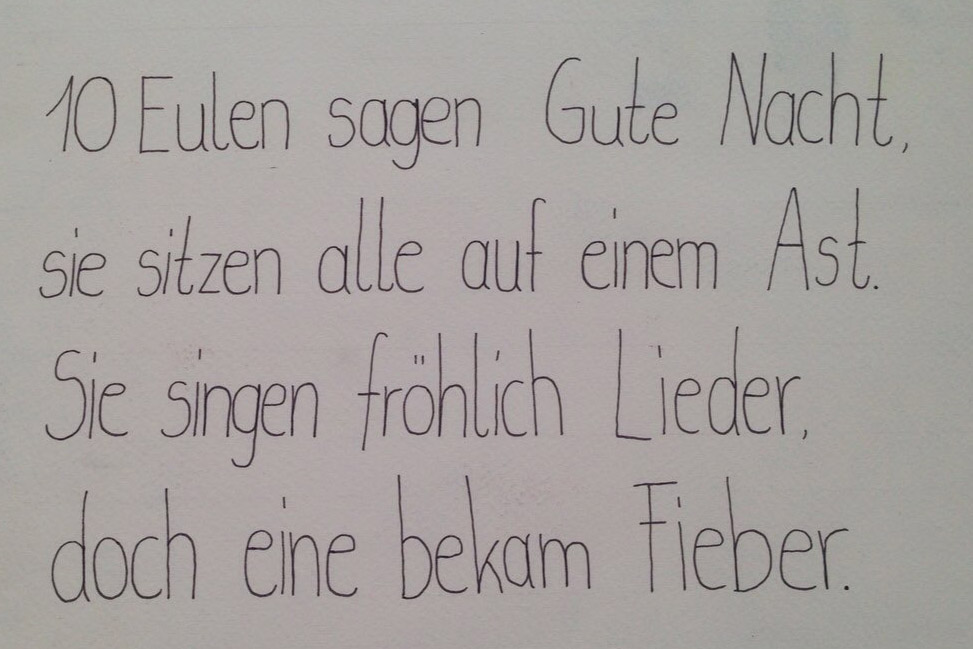 10 Eulen sagen Gute Nacht,
sie sitzen alle auf einem Ast.
Sie singen fröhlich Lieder,
doch eine bekam Fieber.